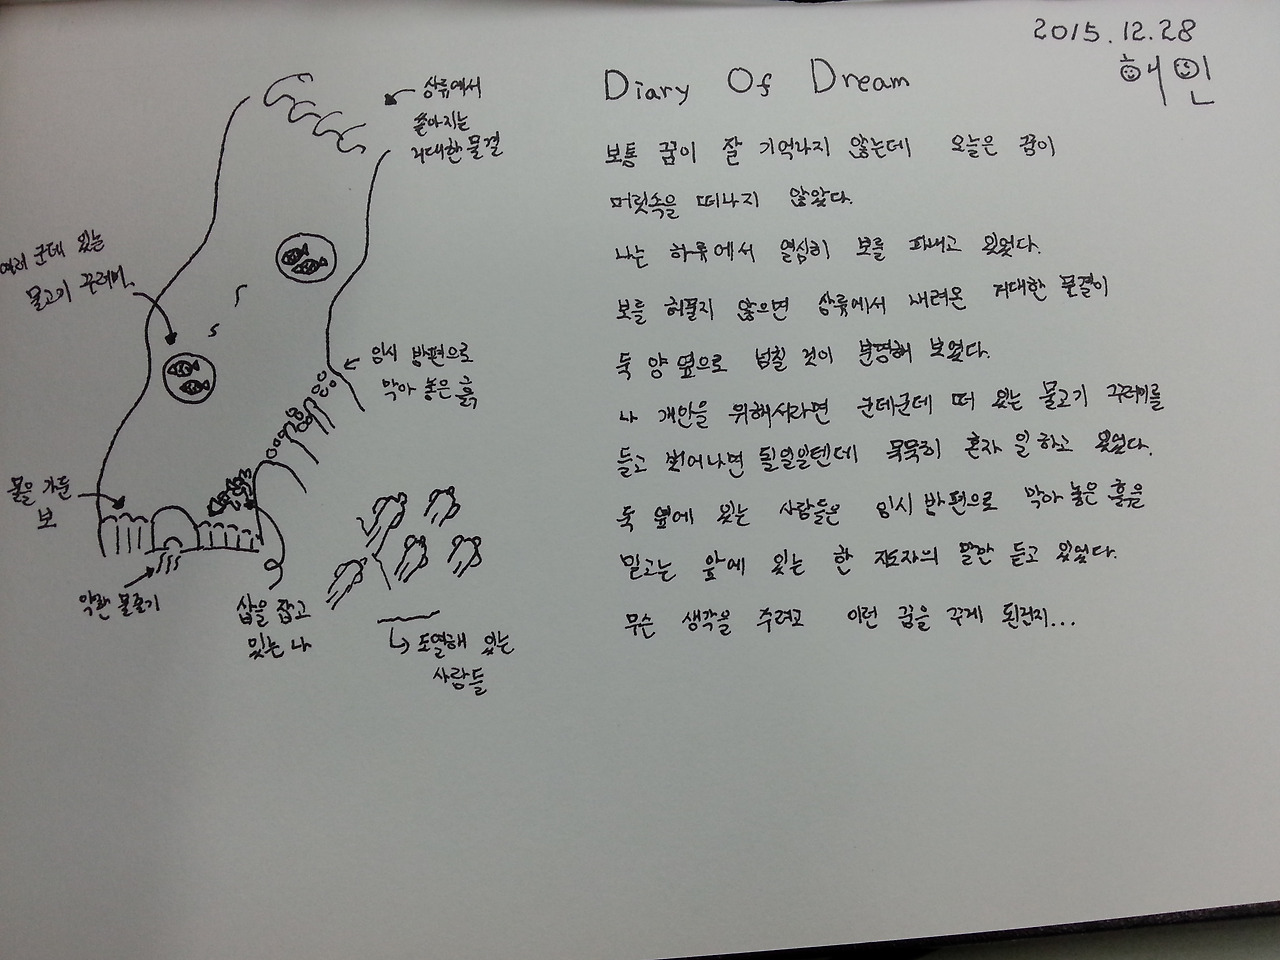 2015.12.28
해인
Diary Of Dream
보통 꿈이 잘 기억나지 않는데 오늘은 꿈이
머릿속을 떠나지 않았다.
나는 하류에서 열심히 보를 파내고 있었다.
보를 허물지 않으면 상류에서 내려온 거대한 물결이
둑 양 옆으로 넘칠 것이 분명해 보였다.
나 개안을 위해서라면 군데군데 떠 있는 물고기 꾸러미를
들고 벗어나면 될일일텐데 묵묵히 혼자 일 하고 있었다.
둑 옆에 있는 사람들은 임시 방편으로 막아 놓은 흙을
믿고는 앞에 있는 한 지도자의 말만 듣고 있었다.
무슨 생각을 주려고 이런 꿈을 꾸게 된건지...
상류에서
쏟아지는
거대한 물결
여러 군데 있는
물고기 꾸러미.
임시 방편으로
막아 놓은 흙
물을 가둔
보
약한 물줄기
삽을 잡고
있는 나
도열해 있는
사람들